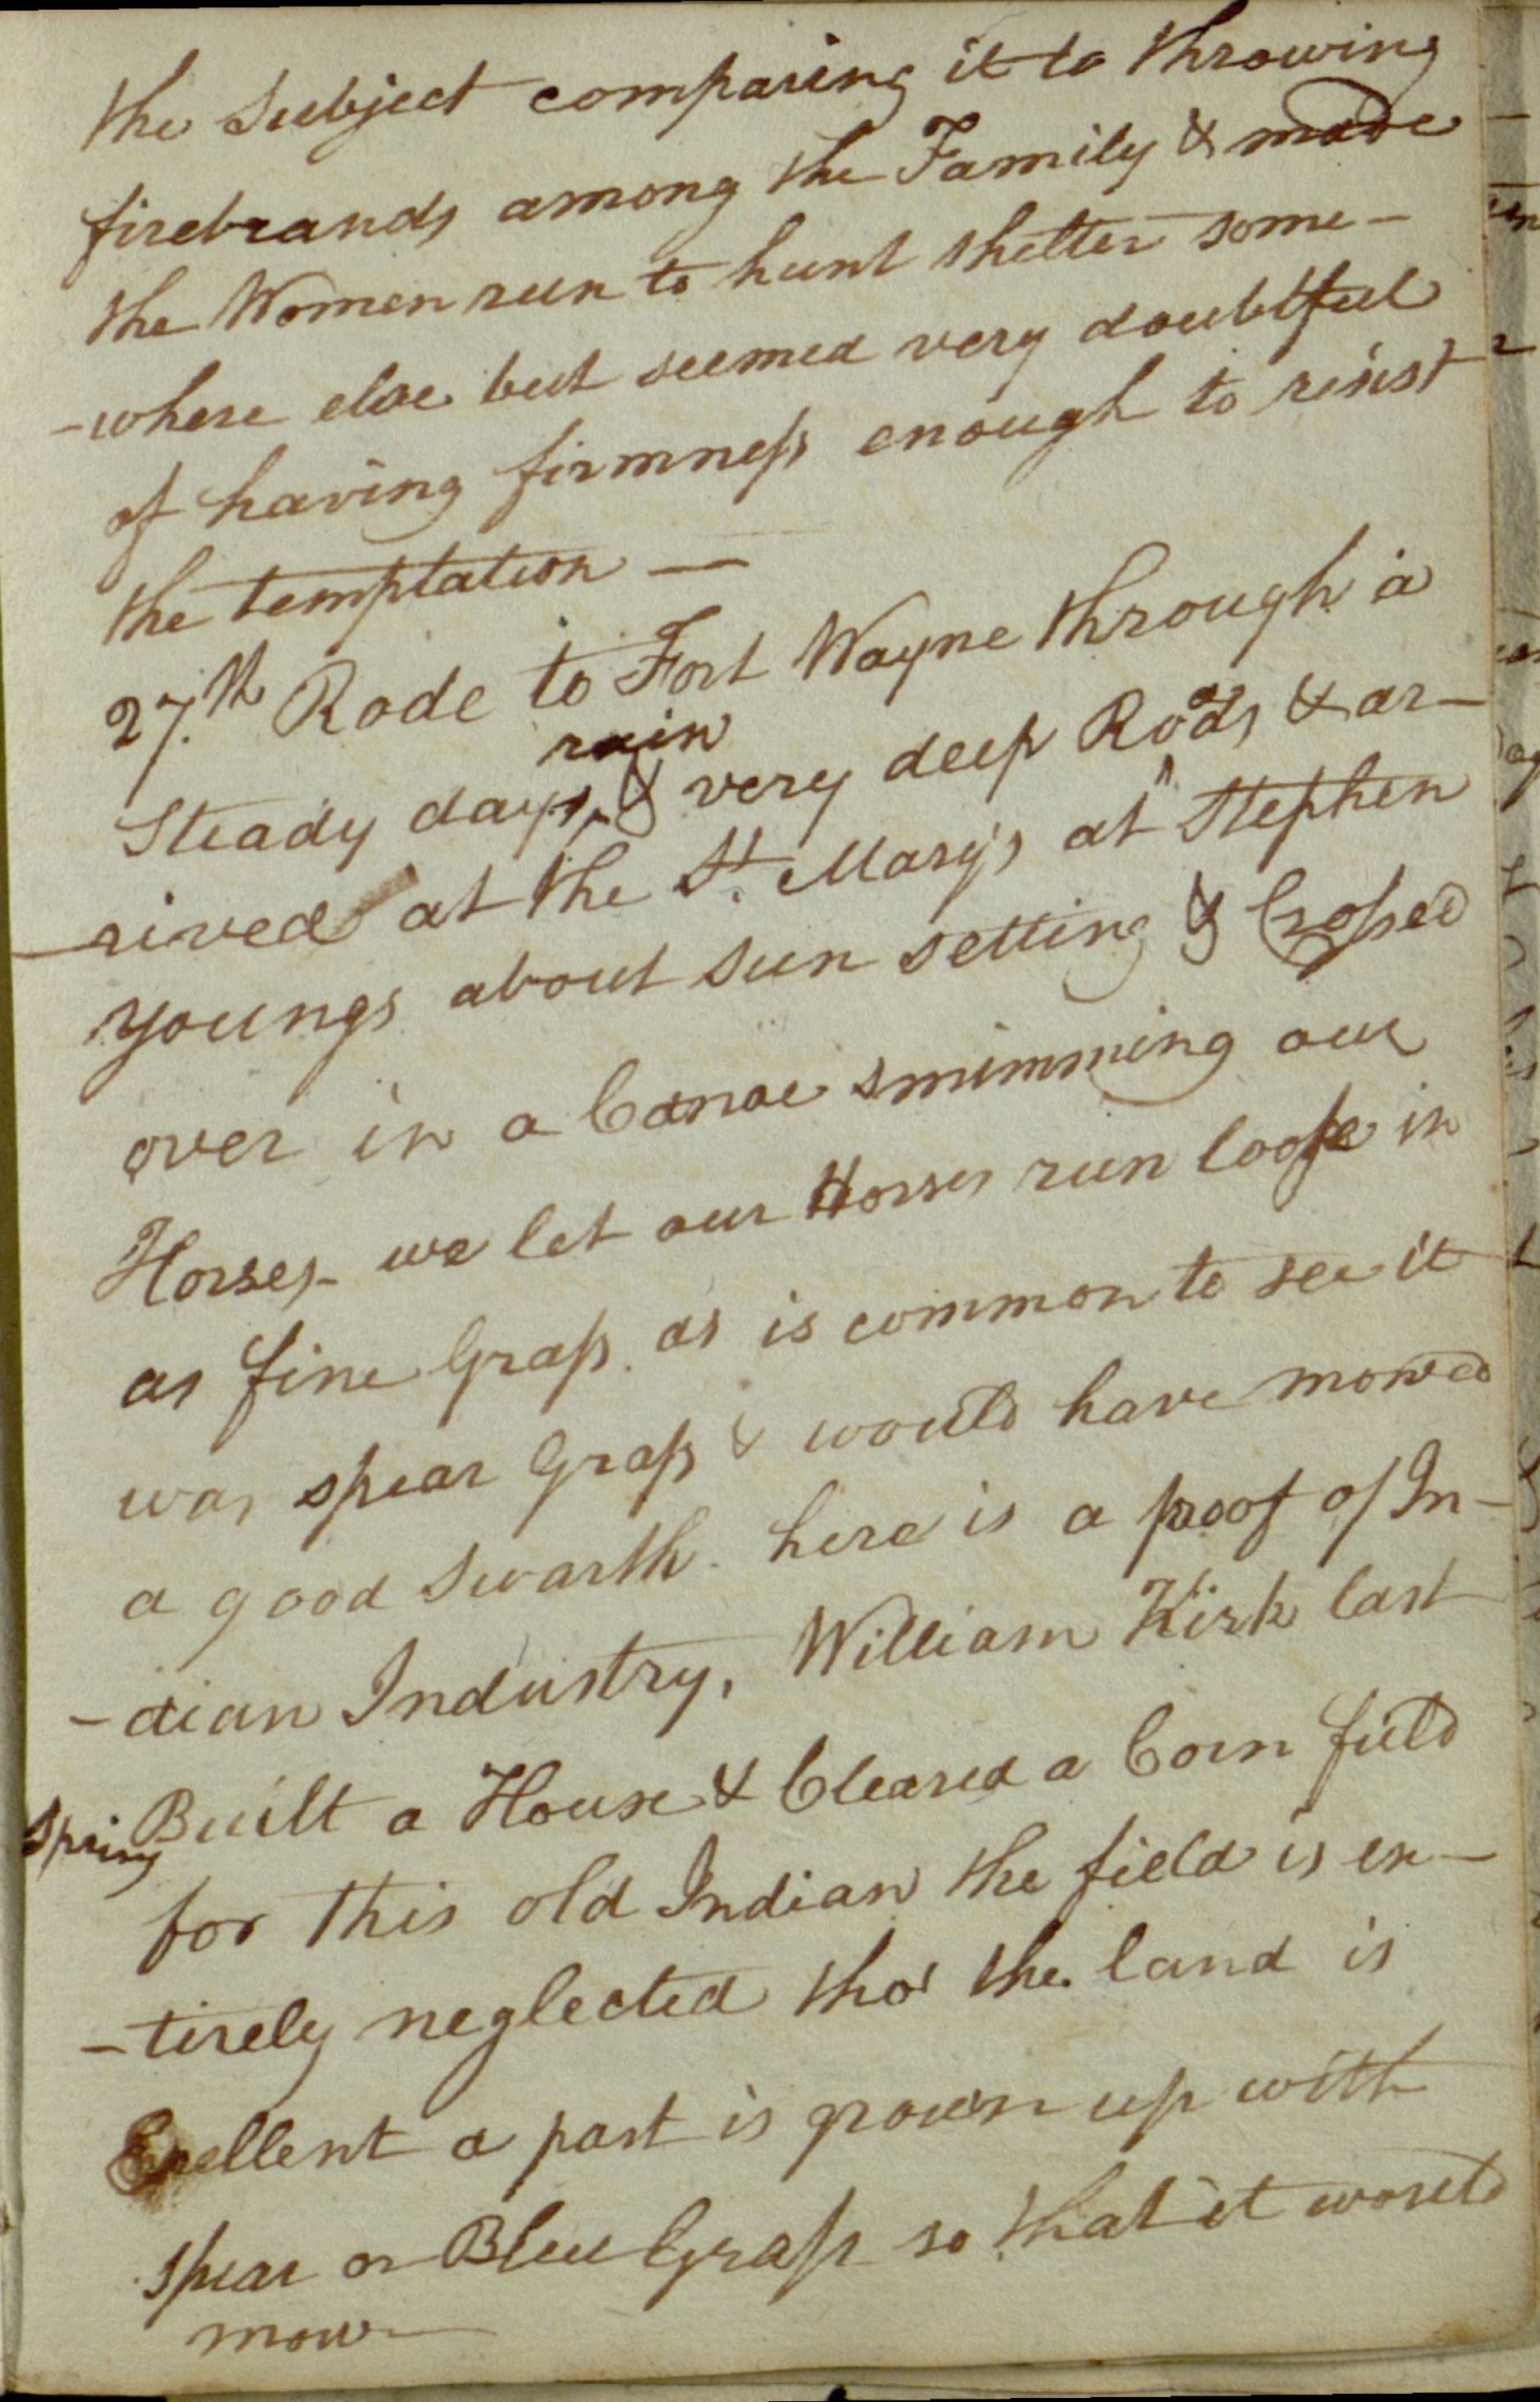 the Subject comparing it to throwing
firebrands among the Family & made
the Women run to hunt shelter some-
-where else but seemed very doubtful
of having firmness enough to resist
the temptation —
27.th Rode to Fort Wayne through a
rain
Steady days, & very deep Roads & ar-
-rived at the St. Mary's at Stephen
Youngs about sun setting & Crossed
over in a Canoe swimming our
Horses - we let our Horses run loose in
as fine Grass as is common to see it
was spear Grass & would have mowed
a good swarth. here is a proof of In-
-dian Industry, William Kirk last
Spring Built a House & Cleared a Corn field
for this old Indian the field is en-
-tirely neglected tho' the land is
Exellent a part is grown up with
spear or Blue Grass so that it would
mow —